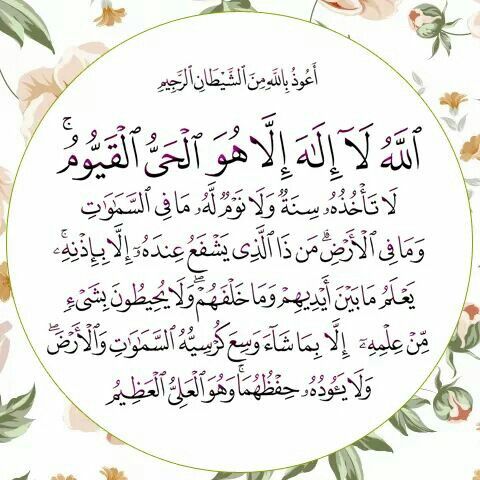 أَعُوذُ بِاللَّهِ مِنَ الشَّيْطَانِ الرَّجِيمِ
ٱللَّهُ لَآ إِلَـٰهَ إِلَّا هُوَ ٱلْحَىُّ ٱلْقَيُّومُ ۚ
لَا تَأْخُذُهُۥ سِنَةٌ وَلَا نَوْمٌ لَّهُۥ مَا فِى ٱلسَّمَـٰوَٰتِ
وَمَا فِى ٱلْأَرْضِ ۗ مَن ذَا ٱلَّذِى يَشْفَعُ عِندَهُۥٓ إِلَّا بِإِذْنِهِۦ ۚ
يَعْلَمُ مَا بَيْنَ أَيْدِيهِمْ وَمَا خَلْفَهُمْ ۖ وَلَا يُحِيطُونَ بِشَىْءٍ
مِّنْ عِلْمِهِۦٓ إِلَّا بِمَا شَآءَ وَسِعَ كُرْسِيُّهُ ٱلسَّمَـٰوَٰتِ وَٱلْأَرْضَ ۖ
وَلَا يَـُٔودُهُۥ حِفْظُهُمَا ۚ وَهُوَ ٱلْعَلِىُّ ٱلْعَظِيمُ